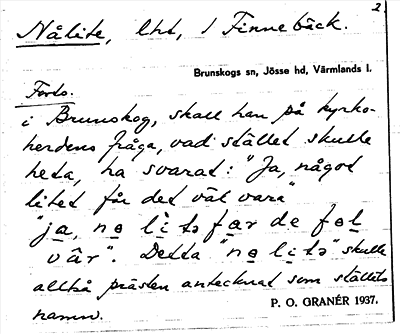 2
Nålite, lht, 1 Finnebäck.
Brunskogs sn, Jösse hd, Värmlands l.
Forts.
i Brunskog, skall han på kyrko-
herdens fråga, vad stället skulle
heta, ha svarat: "Ja, något
litet får det väl vara"
"ja, no lìts far de fol
vâr". Detta "no lits" skulle
alltså prästen antecknat som ställets
namn.
P. O. GRANÉR 1937.